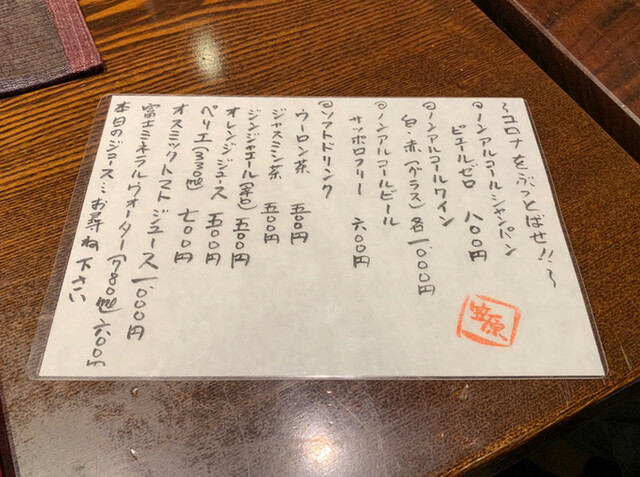 〜コロナをぶっとばせ!!〜
◎ノンアルコールシャンパン
ピエールゼロ 八〇〇円
◎ノンアルコールワイン
白・赤(グラス)各一、〇〇〇円
◎ノンアルコールビール
サッポロフリー 六〇〇円
◎ソフトドリンク
ウーロン茶 五〇〇円
ジャスミン茶 五〇〇円
ジンジャエール(辛口)五〇〇円
オレンジジュース 五〇〇円
ペリエ(330㎖) 七〇〇円
オスミックトマトジュース 一、〇〇〇円
富士ミネラルウォーター(780㎖)六〇〇円
本日のジュース…お尋ね下さい
笠原